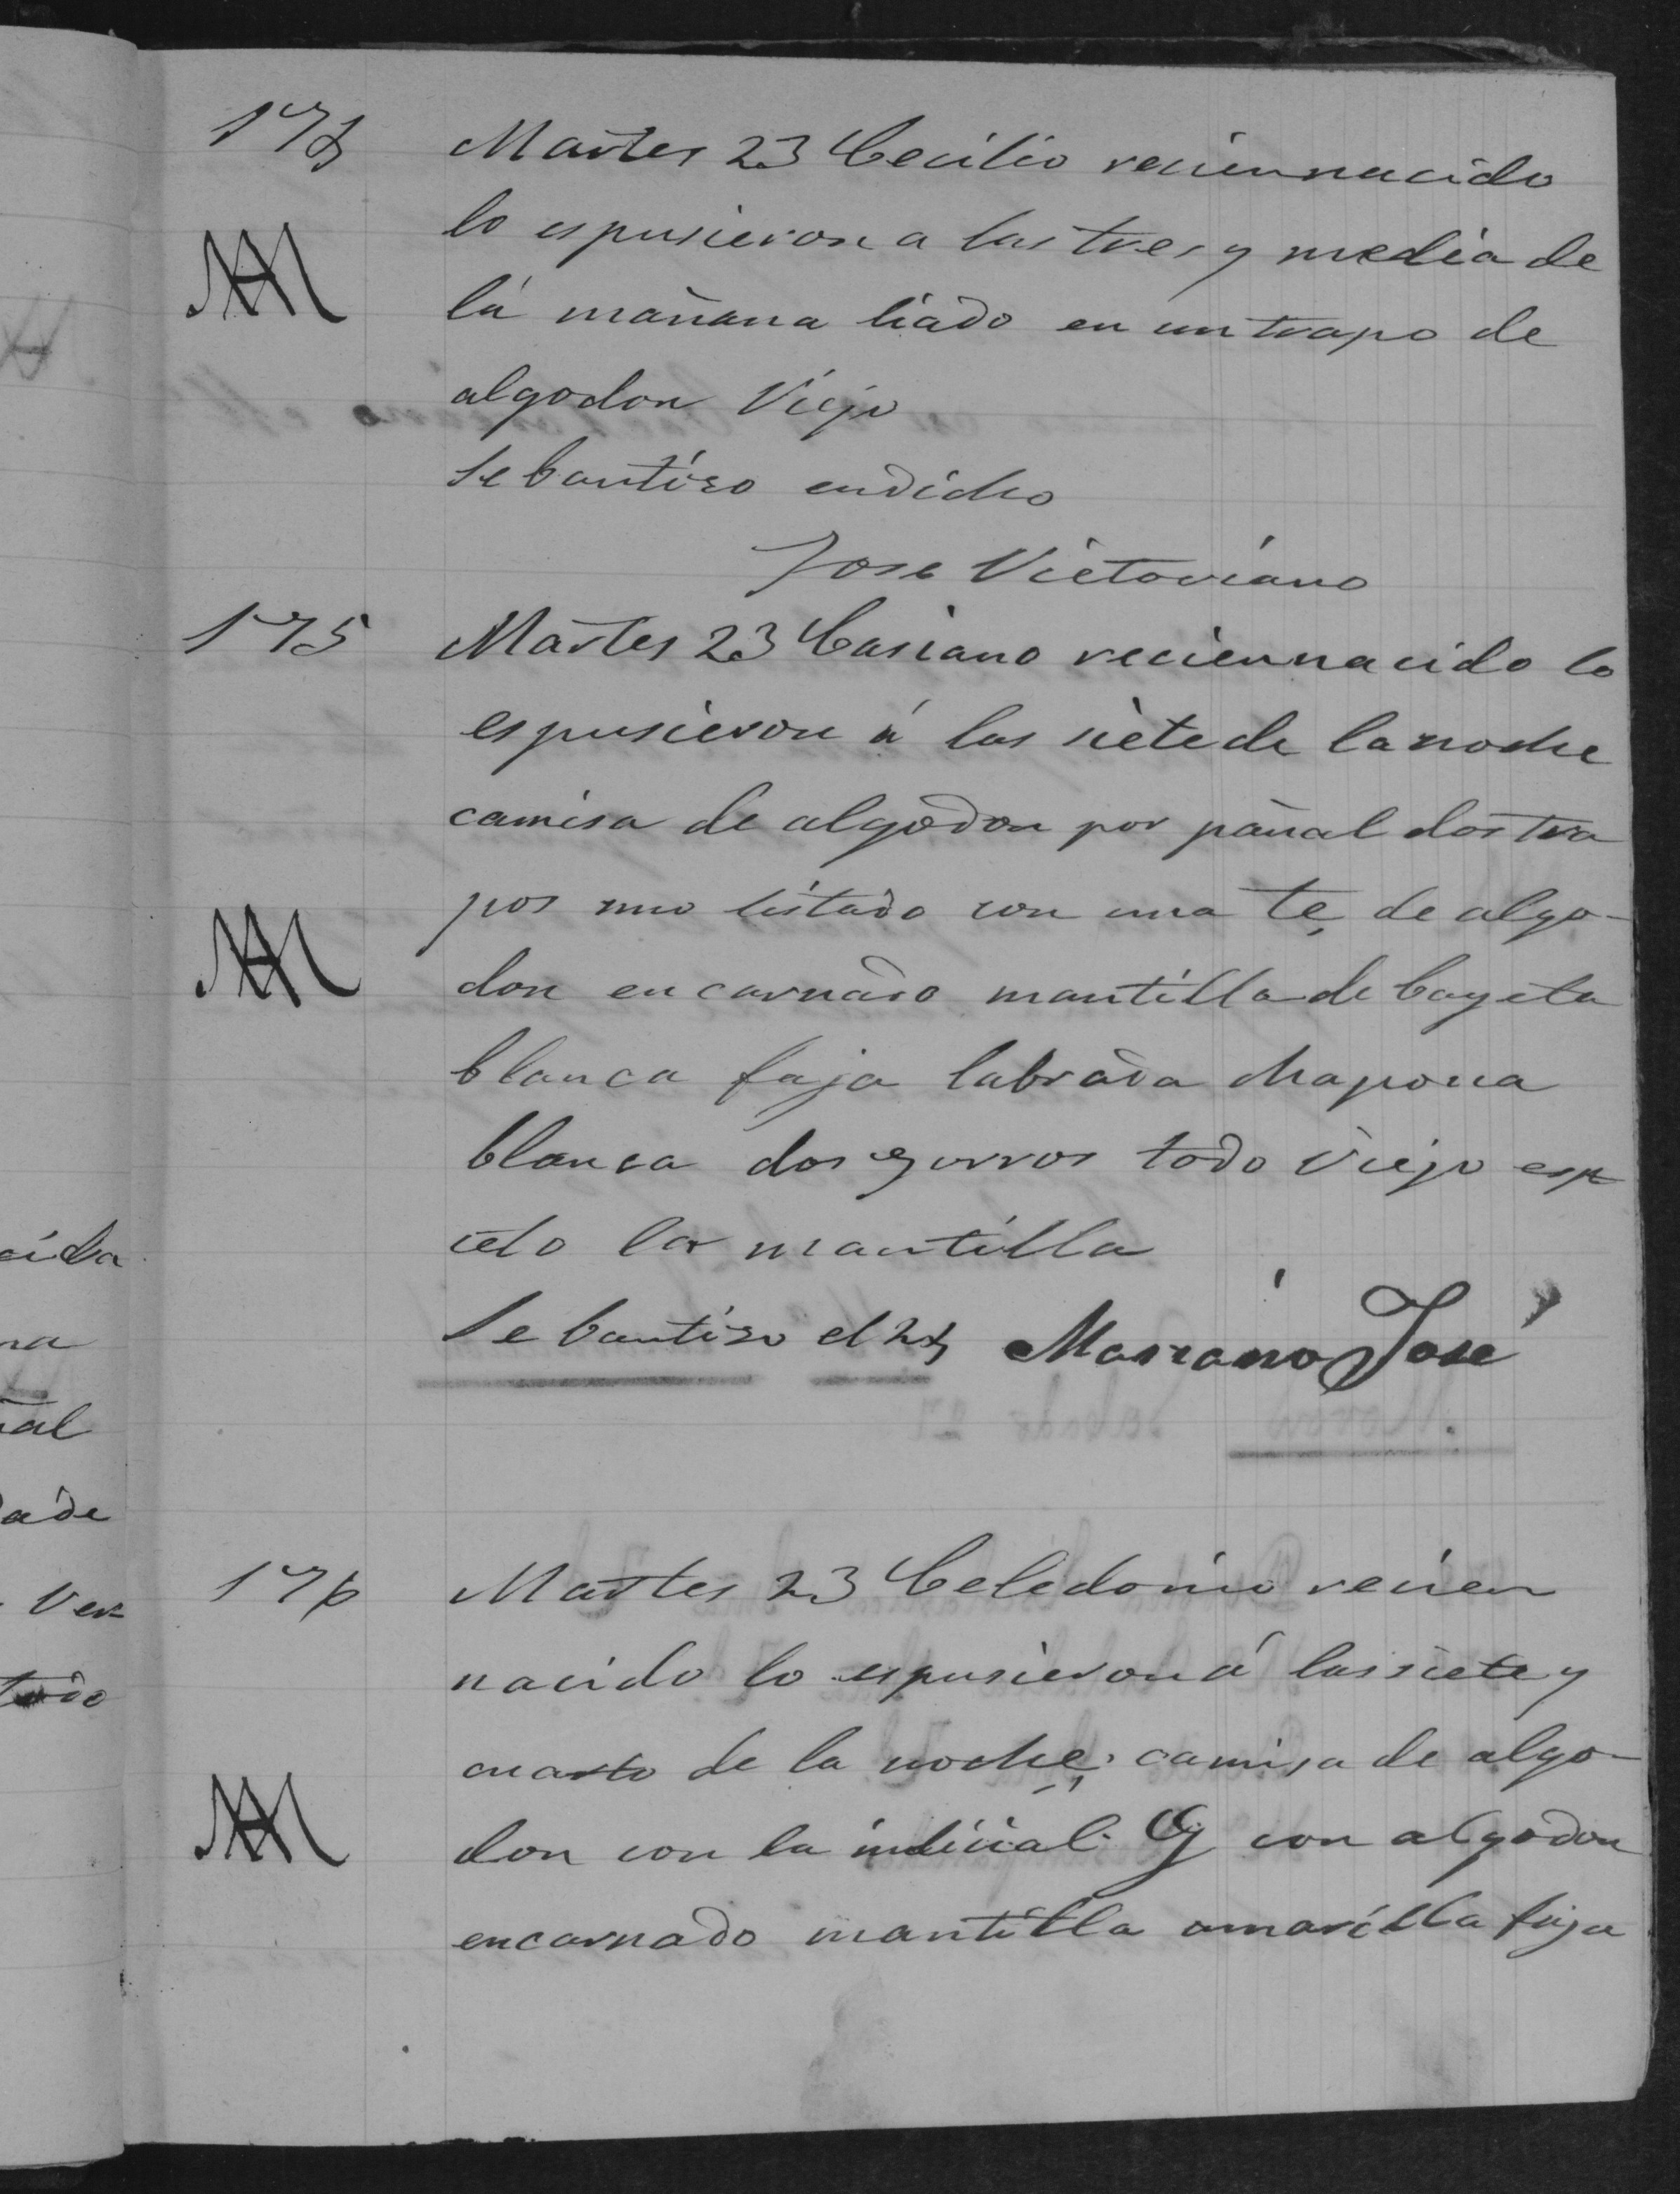 174 Martes 23 Cecilio reciennacido
lo espusieron a las tres y media de
la mañana liado en un trapo de
algodon viejo
Se bautizo en dicho
Jose Victoriano
175 Martes 23 Casiano reciennacido lo
espusieron á las siete de la noche
camisa de algodon por pañal dos tra
pos uno listado con una te de algo-
don encarnado mantilla de bayeta
blanca faja labrada chapona
blanca dos gorros todo viejo esp
cto la mantilla
Se bautizo el 24 Mariano José
176 Martes 23 Celedonio recien
nacido lo espusieron á las siete y
cuarto de la noche camisa de algo-
don con la inicial G con algodon
encarnado mantilla amarilla faja